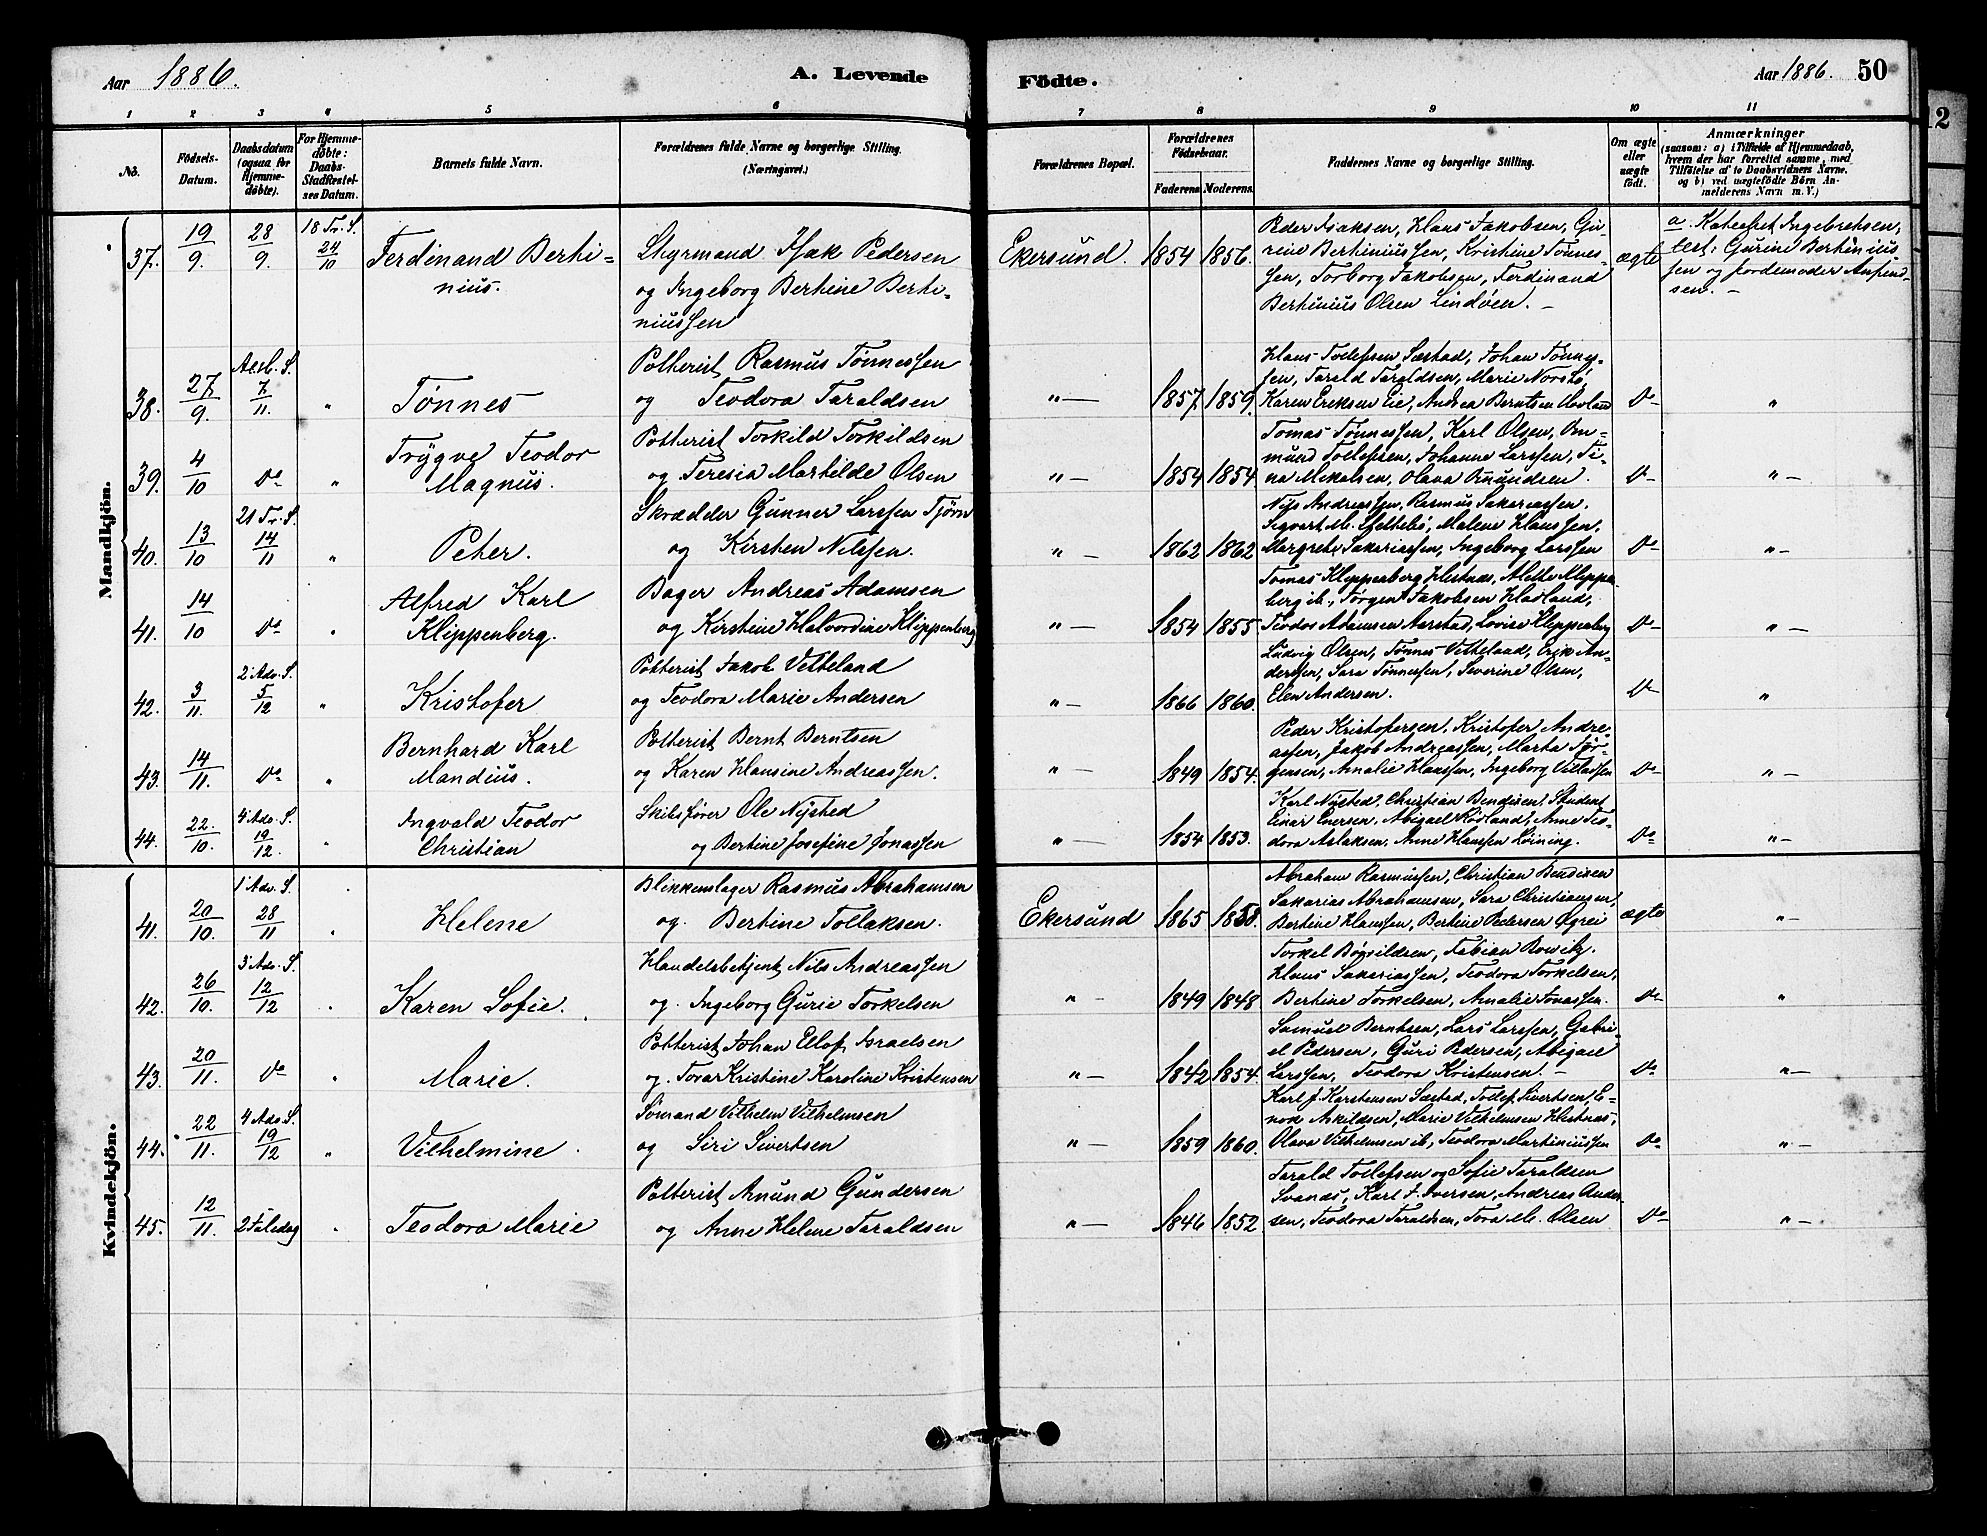 Aar 1886.
A. Levende
Födte.
Aar 1886.
50
12
1 2 3 4 5 6 7 8 9 10 11
No.
Födsels-Datum.
Daabsdatum (ogsaa for Hjemme-döbte).
For Hjemme-döbte: Daabs-Stadfæstel-ses Datum.
Barnets fulde Navn.
Forældrenes fulde Navne og borgerlige Stilling. (Næringsvei.)
Forældrenes Bopæl.
Forældrenes Födselsaar.
Faderens. Moderens.
Faddernes Navne og borgerlige Stilling.
Om ægte eller uægte födt.
Anmærkninger
(saasom: a) i Tilfælde af Hjemmedaab, hvem der har forrettet samme, med Tilföielse af to Daabsvidners Navne, og b) ved uægtefödte Börn An-melderens Navn m. V.)
Mandkjön.
37. 19/9. 28/9. 18 Tr. S. 24/10
Ferdinand Berti-
nius.
Styrmand Isak Pedersen
og Ingeborg Bertine Berti-
niussen
Ekersund. 1854 1856.
Peder Isaksen, Hans Jakobsen, Gu-
rine Bertiniussen, Kristine Tønnes-
sen, Torborg Jakobsen, Ferdinand
Bertinius Olsen Lindøen. –
ægte
a. Kateket Ingebretsen,
test: Gurine Bertinius-
sen og jordemoder
38. 27/9. 7/11. "
Tønnes
Potterist Rasmus Tønnessen
og Teodora Taraldsen
" — 1857 1859.
Hans Tollefsen Sæstad, Johan Tønnes-
sen, Tarald Taraldsen, Marie
Karen Eriksen Eie, Andrea Berntsen Hovland
Do – "
39. 4/10 Do "
Trygve Teodor
Magnus.
Potterist Torkild Torkildsen
og Teresia Martilde Olsen
" — 1854 1854
Tomas Tønnessen, Karl Olsen, Om-
mund Tollefsen, Johanne Larssen, Ti-
na Mikalsen, Olava
Do – " —
40. 13/10 21 Tr. S. 14/11 "
Peter.
Skrædder Gunner Larssen Tjørn
og Kirsten Nilssen.
" — 1862 1862
Nils Andreassen, Rasmus Sakariassen.
Sigvart M. Malene Hanssen,
Margrete Sakariassen, Ingeborg Larssen
Do – " —
41. 14/10 Do "
Alfred Karl
Klippenberg.
Bager Andreas Adamsen
og Kirstine Halvordine Klippenberg
" — 1854 1855
Tomas Klippenberg Hestnæs, Alette Klippen-
berg ib., Jørgen Jakobsen
Teodor Adamsen Aarstad, Lovise Klippenberg
Do – " —
42. 3/11. 2 Adv. S. 5/12 "
Kristofer
Potterist Jakob Vetteland
og Teodora Marie Andersen
" — 1866 1860.
Ludvig Olsen, Tønnes Vetteland, Erik An-
derssen, Sara Tønnessen, Severine Olsen,
Elen Andersen.
Do – "
43. 14/11. Do "
Bernhard Karl
Mandius.
Potterist Bernt Berntsen
og Karen Hansine Andreassen.
" — 1849 1854.
Peder Kristofersen, Kristofer Andre-
assen, Jakob Andreassen, Marta Jør-
gensen, Amalie Hanssen, Ingeborg
Do – " —
44. 22/10. 4 Adv. S. 19/12. "
Ingvald Teodor
Christian
Skibsfører Ole Nysted
og Bertine Josefine Jonassen
" — 1854 1853.
Karl Nysted, Christian Bendixen, Student
Einar Evensen, Abigael Anne Teo-
dora Aslaksen, Anne Hanssen
Do – " —
Kvindekjön.
41. 20/10. 1 Adv. S. 28/11 "
Helene
Blikkenslager Rasmus Abrahamsen
og. Bertine Tollaksen.
Ekersund 1865 1858.
Abraham Rasmussen, Christian Bendixen
Sakarias Abrahamsen, Sara Christiansen,
Bertine Hanssen, Bertine Pedersen Øgrei
ægte " —
42. 26/10. 3 Adv. S. 12/12 "
Karen Sofie.
Handelsbetjent Nils Andreassen
og. Ingeborg Gurie Torkelsen
" – 1849 1848
Torkel Fabian
Hans Sakariassen, Teodora Torkelsen,
Bertine Torkelsen, Amalie Jonassen.
Do – "
43. 20/11. Do "
Marie.
Potterist Johan Elof Israelsen
og. Tovar Kristine Karoline Kristensen
" — 1842 1854.
Samuel Berntsen, Lars Larssen, Gabri-
el Pedersen, Guri Pedersen, Abigael
Larssen, Teodora Kristensen. –
Do " —
44. 22/11. 4 Adv. S. 19/12 "
Vilhelmine.
Sømand Vilhelm Vilhelmsen
og Siri Sivertsen
" — 1859 1860.
Karl J. Karstensen Sæstad, Tollef Sivertsen, E-
nok Askildsen, Marie Vilhelmsen Hestnæs,
Olava Vilhelmsen ib., Teodora Martiniussen
Do " —
45. 12/11. 2 Juledag "
Teodora Marie
Potterist Amund Gundersen
og Anne Helene Taraldsen
" — 1846 1852.
Tarald Tollefsen og Sofie Taraldsen
Svanæs, Karl J. Iversen, Andreas Ander-
sen, Teodora Taraldsen, Tora M. Olsen
Do " —